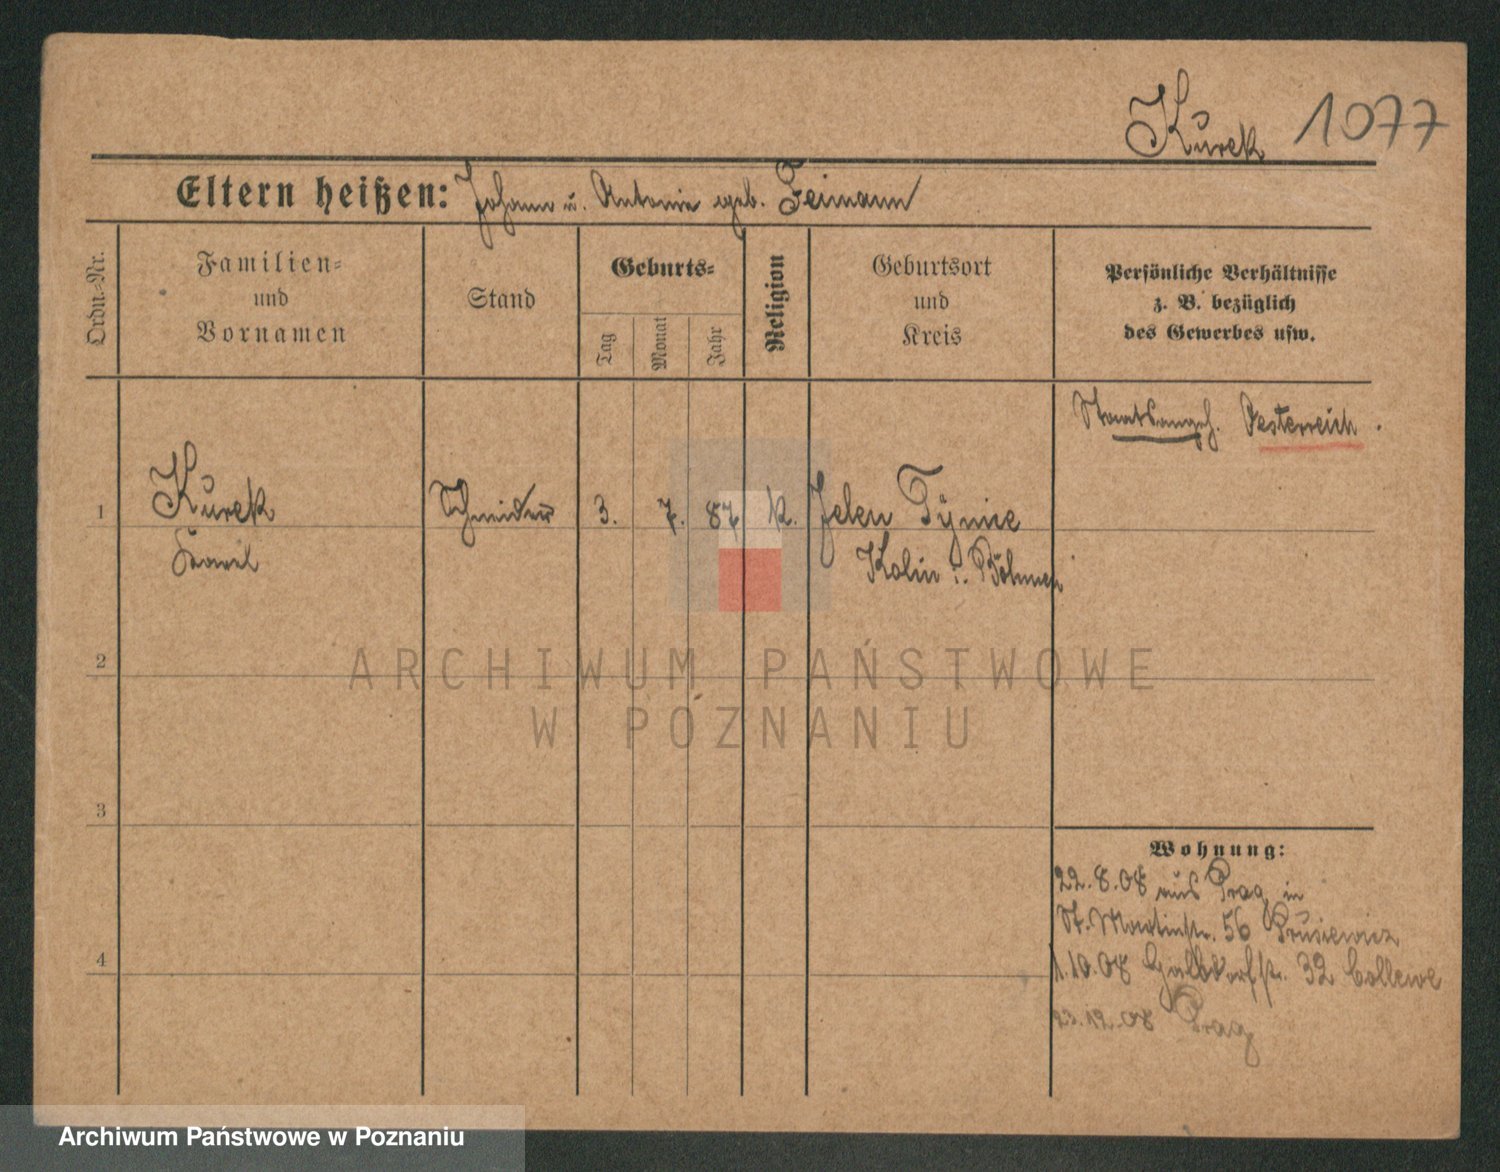 Kurek 1077
Eltern heißen: Johann u. Antonie geb. Feimann
Ordn.-Nr.
Familien-
und
Vornamen
Stand
Geburts-
Tag
Monat
Jahr
Religion
Geburtsort
und
Kreis
Persönliche Verhältnisse
z. B. bezüglich
des Gewerbes usw.
Staatsangeh. Oesterreich.
1 Kurek Schneider 3. 7. 87 k. Jelen Týnice
Karil
Kolin i. Böhmen
2
ARCHIWUM PAŃSTWOWE
W POZNANIU
3
Wohnung:
22.8.08 aus Prag in
St. Martinstr. 56 Prusiewicz
4
1.10.08 Halbdorfstr. 32 Collewe
23.12.08 Prag
Archiwum Państwowe w Poznaniu